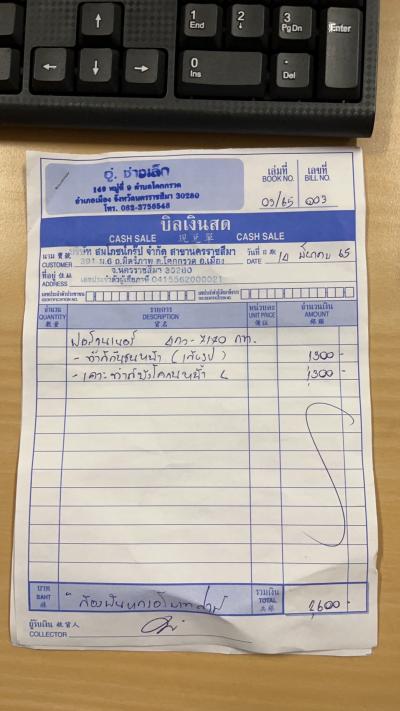 End
Pg Dn
Enter
0
Ins
Del
อู่. ช่างเล็ก
149 หมู่ที่ 9 ตำบลโคกกรวด
อำเภอเมือง จังหวัดนครราชสีมา 30280
โทร. 082-3756548
เล่มที่ เลขที่
BOOK NO. BILL NO.
03/65 003
บิลเงินสด
CASH SALE 現兌單 CASH SALE
นาม
CUSTOMER
บริษัท สมโภชน์กรุ๊ป จำกัด สาขานครราชสีมา
วันที่
DATE
14 มีนาคม 65
ที่อยู่
ADDRESS
391 ม.6 ถ.มิตรภาพ ต.โคกกรวด อ.เมือง
จ.นครราชสีมา 30280
เลขประจำตัวผู้เสียภาษี 0415562000021
จำนวน รายการ หน่วยละ จำนวนเงิน
QUANTITY DESCRIPTION UNIT PRICE AMOUNT
數量 貨名 價銀
ฟอร์จูนเนอร์ กท.
- ทำสีกันชนหน้า 1300-
- เคาะทำสีบังโคลนหน้า L 1,300-
บาท
BAHT
รวมเงิน
TOTAL
2,600-
ผู้รับเงิน
COLLECTOR